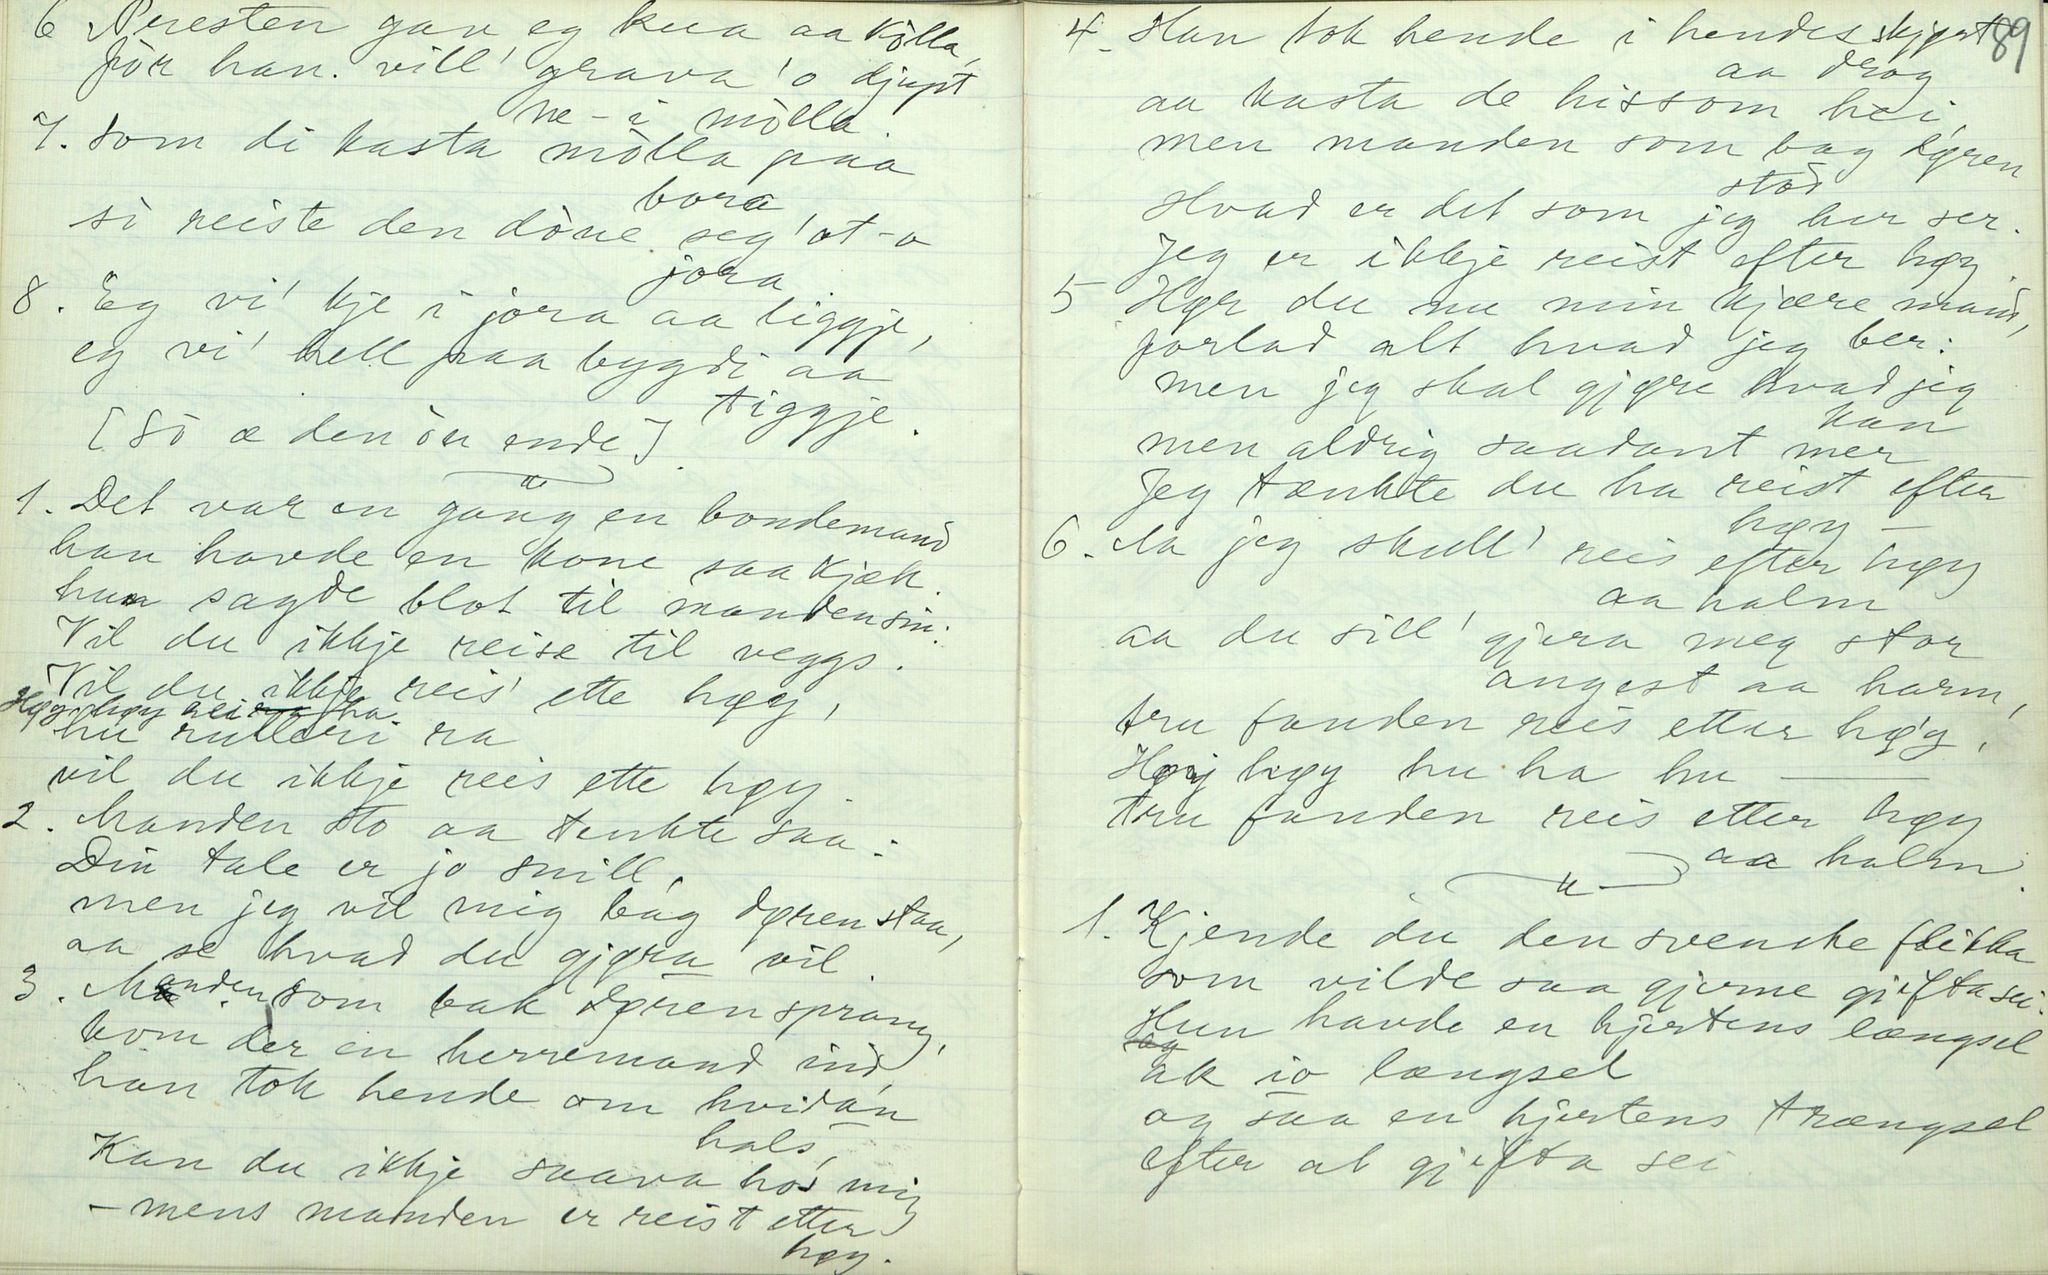 6 Presten gav eg kua aa kòlla,
fòr han. vill' grava 'o djupt
ne-i mòlla.
7. Som di kasta mòlla paa
bora
sò reiste den döue seg' at-o
jora
8. Eg vi' kje i jora aa liggje,
eg vi' hell paa bygdi aa
tiggje.
[Sò æ den òu ende]
1. Det var en gang en bondemand
han havde en kone saa kjæk.
hun sagde blot til manden sin:
Vil du ikkje reise til veggs.
Vil du ikkje reis' ette høy,
Høy høy hei ha
hu rulleri ra
vil du ikkje reis ette høy.
2. Manden sto aa tenkte saa:
Din tale er jo snill,
men jeg vil mig bag døren staa,
aa se hvad du gjøra vil.
3. Manden som bak døren sprang,
kom der en herremand ind,
han tok hende om hvidan
hals,
Kan du ikkje saava hos mig
– mens manden er reist etter
høy.
89
4. Han tok hende i hendes skjørt
aa drog
aa kasta de hissom hei,
men manden som bag døren
stod
Hvad er det som jeg her ser.
Jeg er ikkje reist efter høy.
5 Hør du nu min kjære mand,
forlad alt hvad jeg ber:
men jeg skal gjøre hvad jeg
kan
men aldrig saadant mer
Jeg tænkte du ha reist efter
høy –
6. Ja jeg skull' reis efter høy
aa halm
aa du sill' gjera meg stor
angest aa harm,
tru fanden reis etter høy,
Høy høy hu ha hu —
tru fanden reis etter høy
aa halm.
1. Kjende du den svenske flikka
som vilde saa gjerne gjifta sei.
Hun havde en hjertens længsel
ak io længsel
og saa en hjertens trængsel
efter at gjifta sei